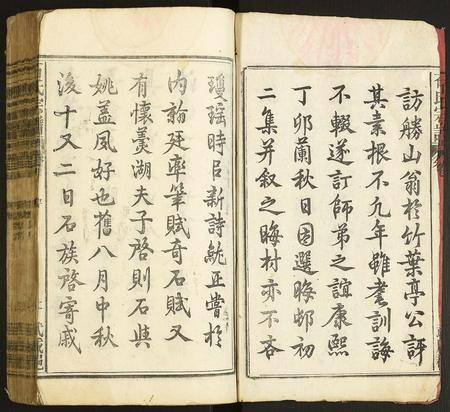 訪勝山翁於竹葉亭公評
其素根不九年雖耄訓誨
不輟遂訂師弟之誼康熙
丁卯蘭秋日因選晦邨初
二集并叙之晦村亦不吝
瓊瑶時呂新詩就正嘗於
内翰廷率筆賦奇石賦又
有懷羨湖夫子啓則石與
姚蓋夙好也舊八月中秋
後十又二日石族啓寄戚